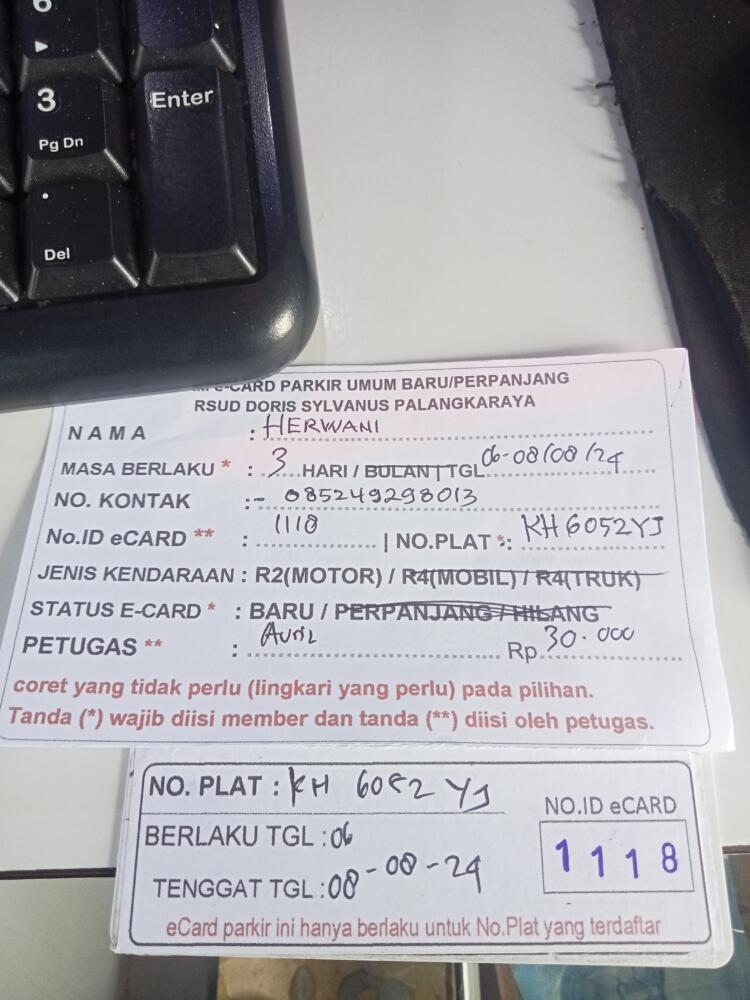 6
3
Pg Dn
Enter
.
Del
e-CARD PARKIR UMUM BARU/PERPANJANG
RSUD DORIS SYLVANUS PALANGKARAYA
NAMA : HERWANI
MASA BERLAKU * : 3 HARI / BULAN | TGL 06-08/08/24
NO. KONTAK :- 085249298013
No.ID eCARD ** : 1118 | NO.PLAT *: KH 6052YJ
JENIS KENDARAAN : R2(MOTOR) / R4(MOBIL) / R4(TRUK)
STATUS E-CARD * : BARU / PERPANJANG / HILANG
PETUGAS ** : Auril Rp 30.000
coret yang tidak perlu (lingkari yang perlu) pada pilihan.
Tanda (*) wajib diisi member dan tanda (**) diisi oleh petugas.
NO. PLAT : KH 6052 YJ
BERLAKU TGL : 06
TENGGAT TGL : 08-08-24
NO.ID eCARD
1118
eCard parkir ini hanya berlaku untuk No.Plat yang terdaftar